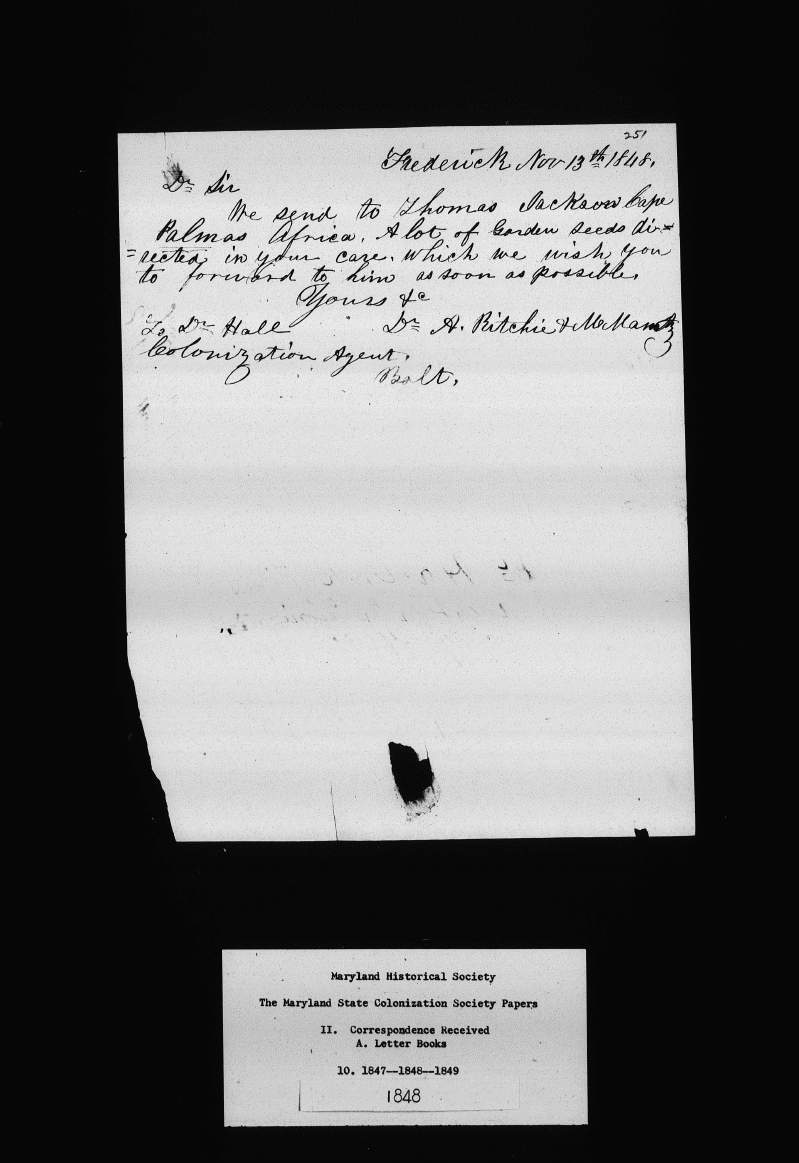 251
Frederick Nov 13th 1848.
Dr Sir
We send to Thomas Jackson Cape
Palmas Africa. A lot of Garden seeds di=
=rected in your care, which we wish you
to forward to him as soon as possible.
Yours &c
To Dr Hall Dr A. Ritchie &
Colonization Agent.
Balt.
Maryland Historical Society
The Maryland State Colonization Society Papers
II. Correspondence Received
A. Letter Books
10. 1847--1848--1849
1848